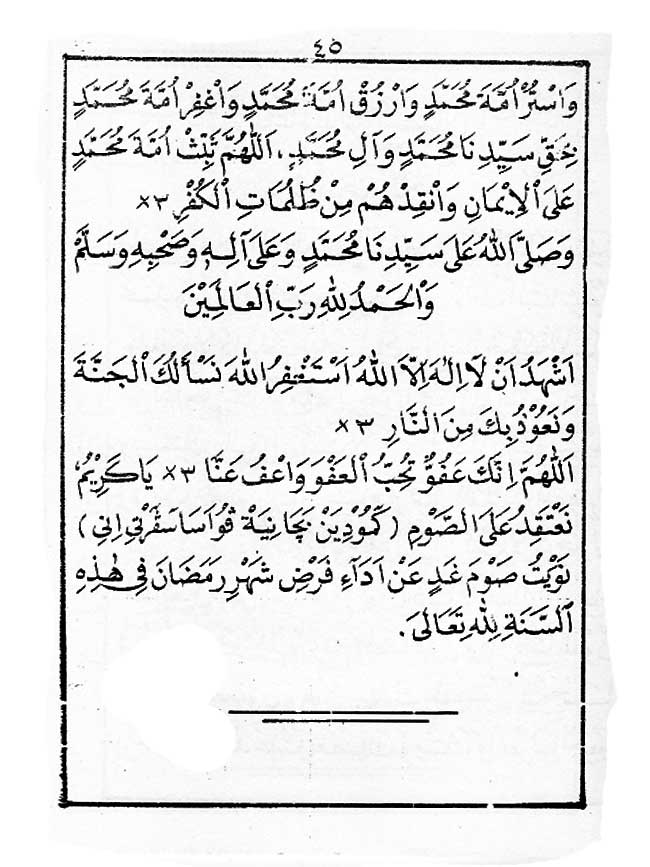 ٤٥
وَاسْتُرْ اُمَّةَ مُحَمَّدٍ وَارْزُقْ اُمَّةَ مُحَمَّدٍ وَاغْفِرْ اُمَّةَ مُحَمَّدٍ
بِحَقِّ سَيِّدِنَا مُحَمَّدٍ وَآلِ مُحَمَّدٍ، اَللّٰهُمَّ ثَبِّتْ اُمَّةَ مُحَمَّدٍ
عَلَى الْاِيْمَانِ وَانْقِذْهُمْ مِنْ ظُلُمَاتِ الْكُفْرِ ×٣
وَصَلَّى اللّٰهُ عَلَى سَيِّدِنَا مُحَمَّدٍ وَعَلَى آلِهِ وَصَحْبِهِ وَسَلَّمْ
وَالْحَمْدُ لِلّٰهِ رَبِّ الْعَالَمِيْنَ
اَشْهَدُ اَنْ لَا اِلٰهَ اِلَّا اللّٰهُ اَسْتَغْفِرُ اللّٰهَ نَسْأَلُكَ الْجَنَّةَ
وَنَعُوْذُ بِكَ مِنَ النَّارِ ×٣
اَللّٰهُمَّ اِنَّكَ عَفُوٌّ تُحِبُّ الْعَفْوَ وَاعْفُ عَنَّا ×٣ يَا كَرِيْمُ،
نَعْتَقِدُ عَلَى الصَّوْمِ (كَمُوْدِيَنْ بَچَا نِيَةْ ڤُوَاسَا سَڤَرْتِي اِنِي)
نَوَيْتُ صَوْمَ غَدٍ عَنْ اَدَآءِ فَرْضِ شَهْرِ رَمَضَانَ فِى هٰذِهِ
السَّنَةِ لِلّٰهِ تَعَالَى.